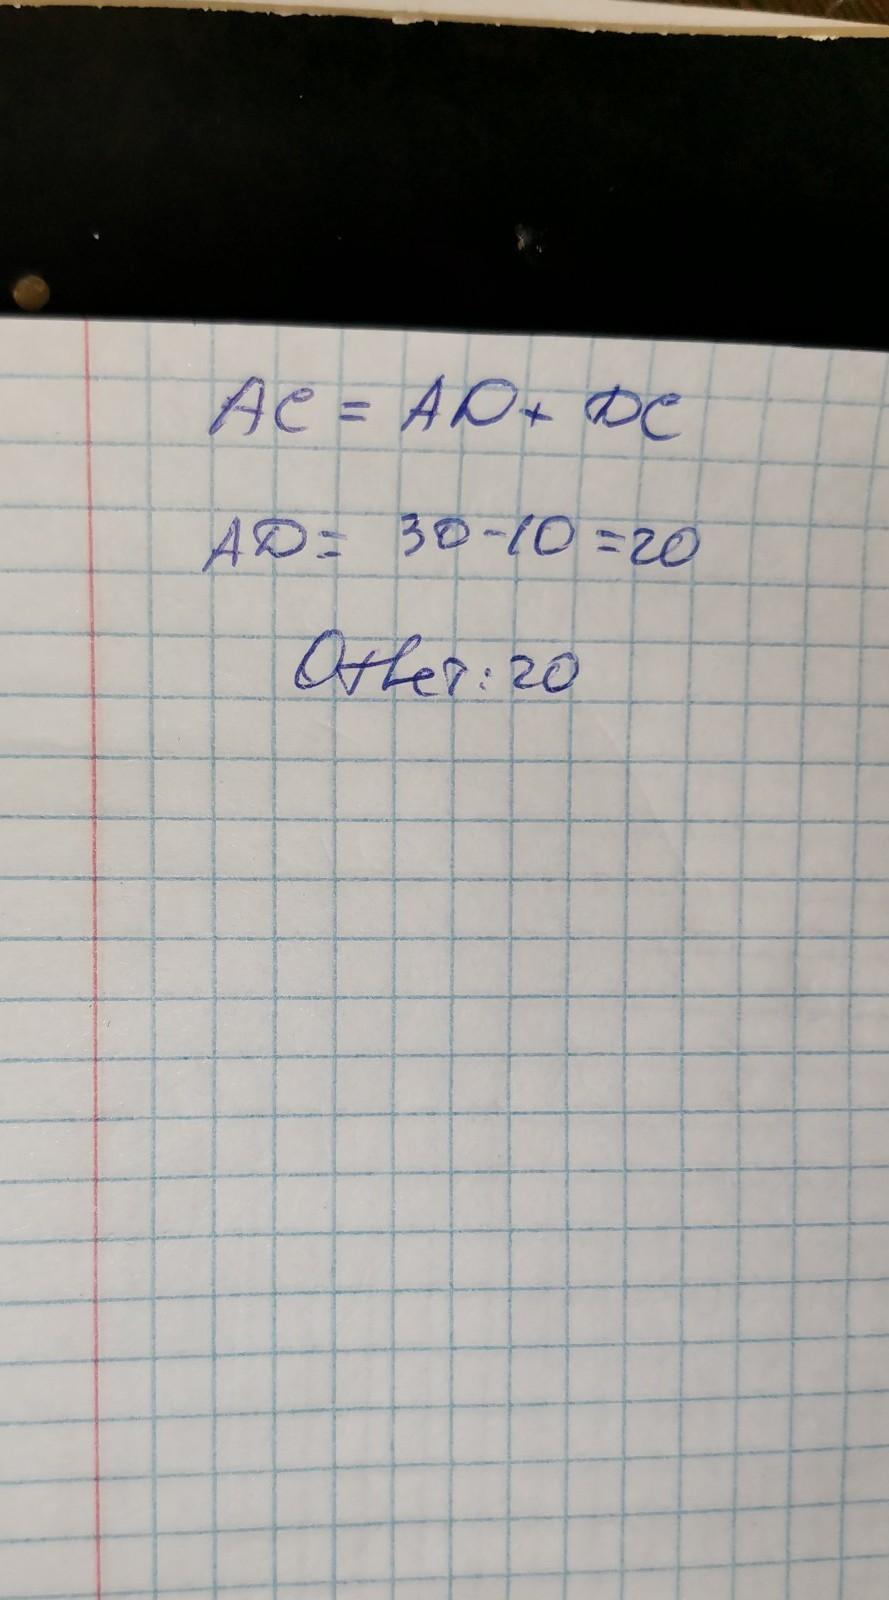 AC = AD + DC
AD = 30 - 10 = 20
Ответ: 20